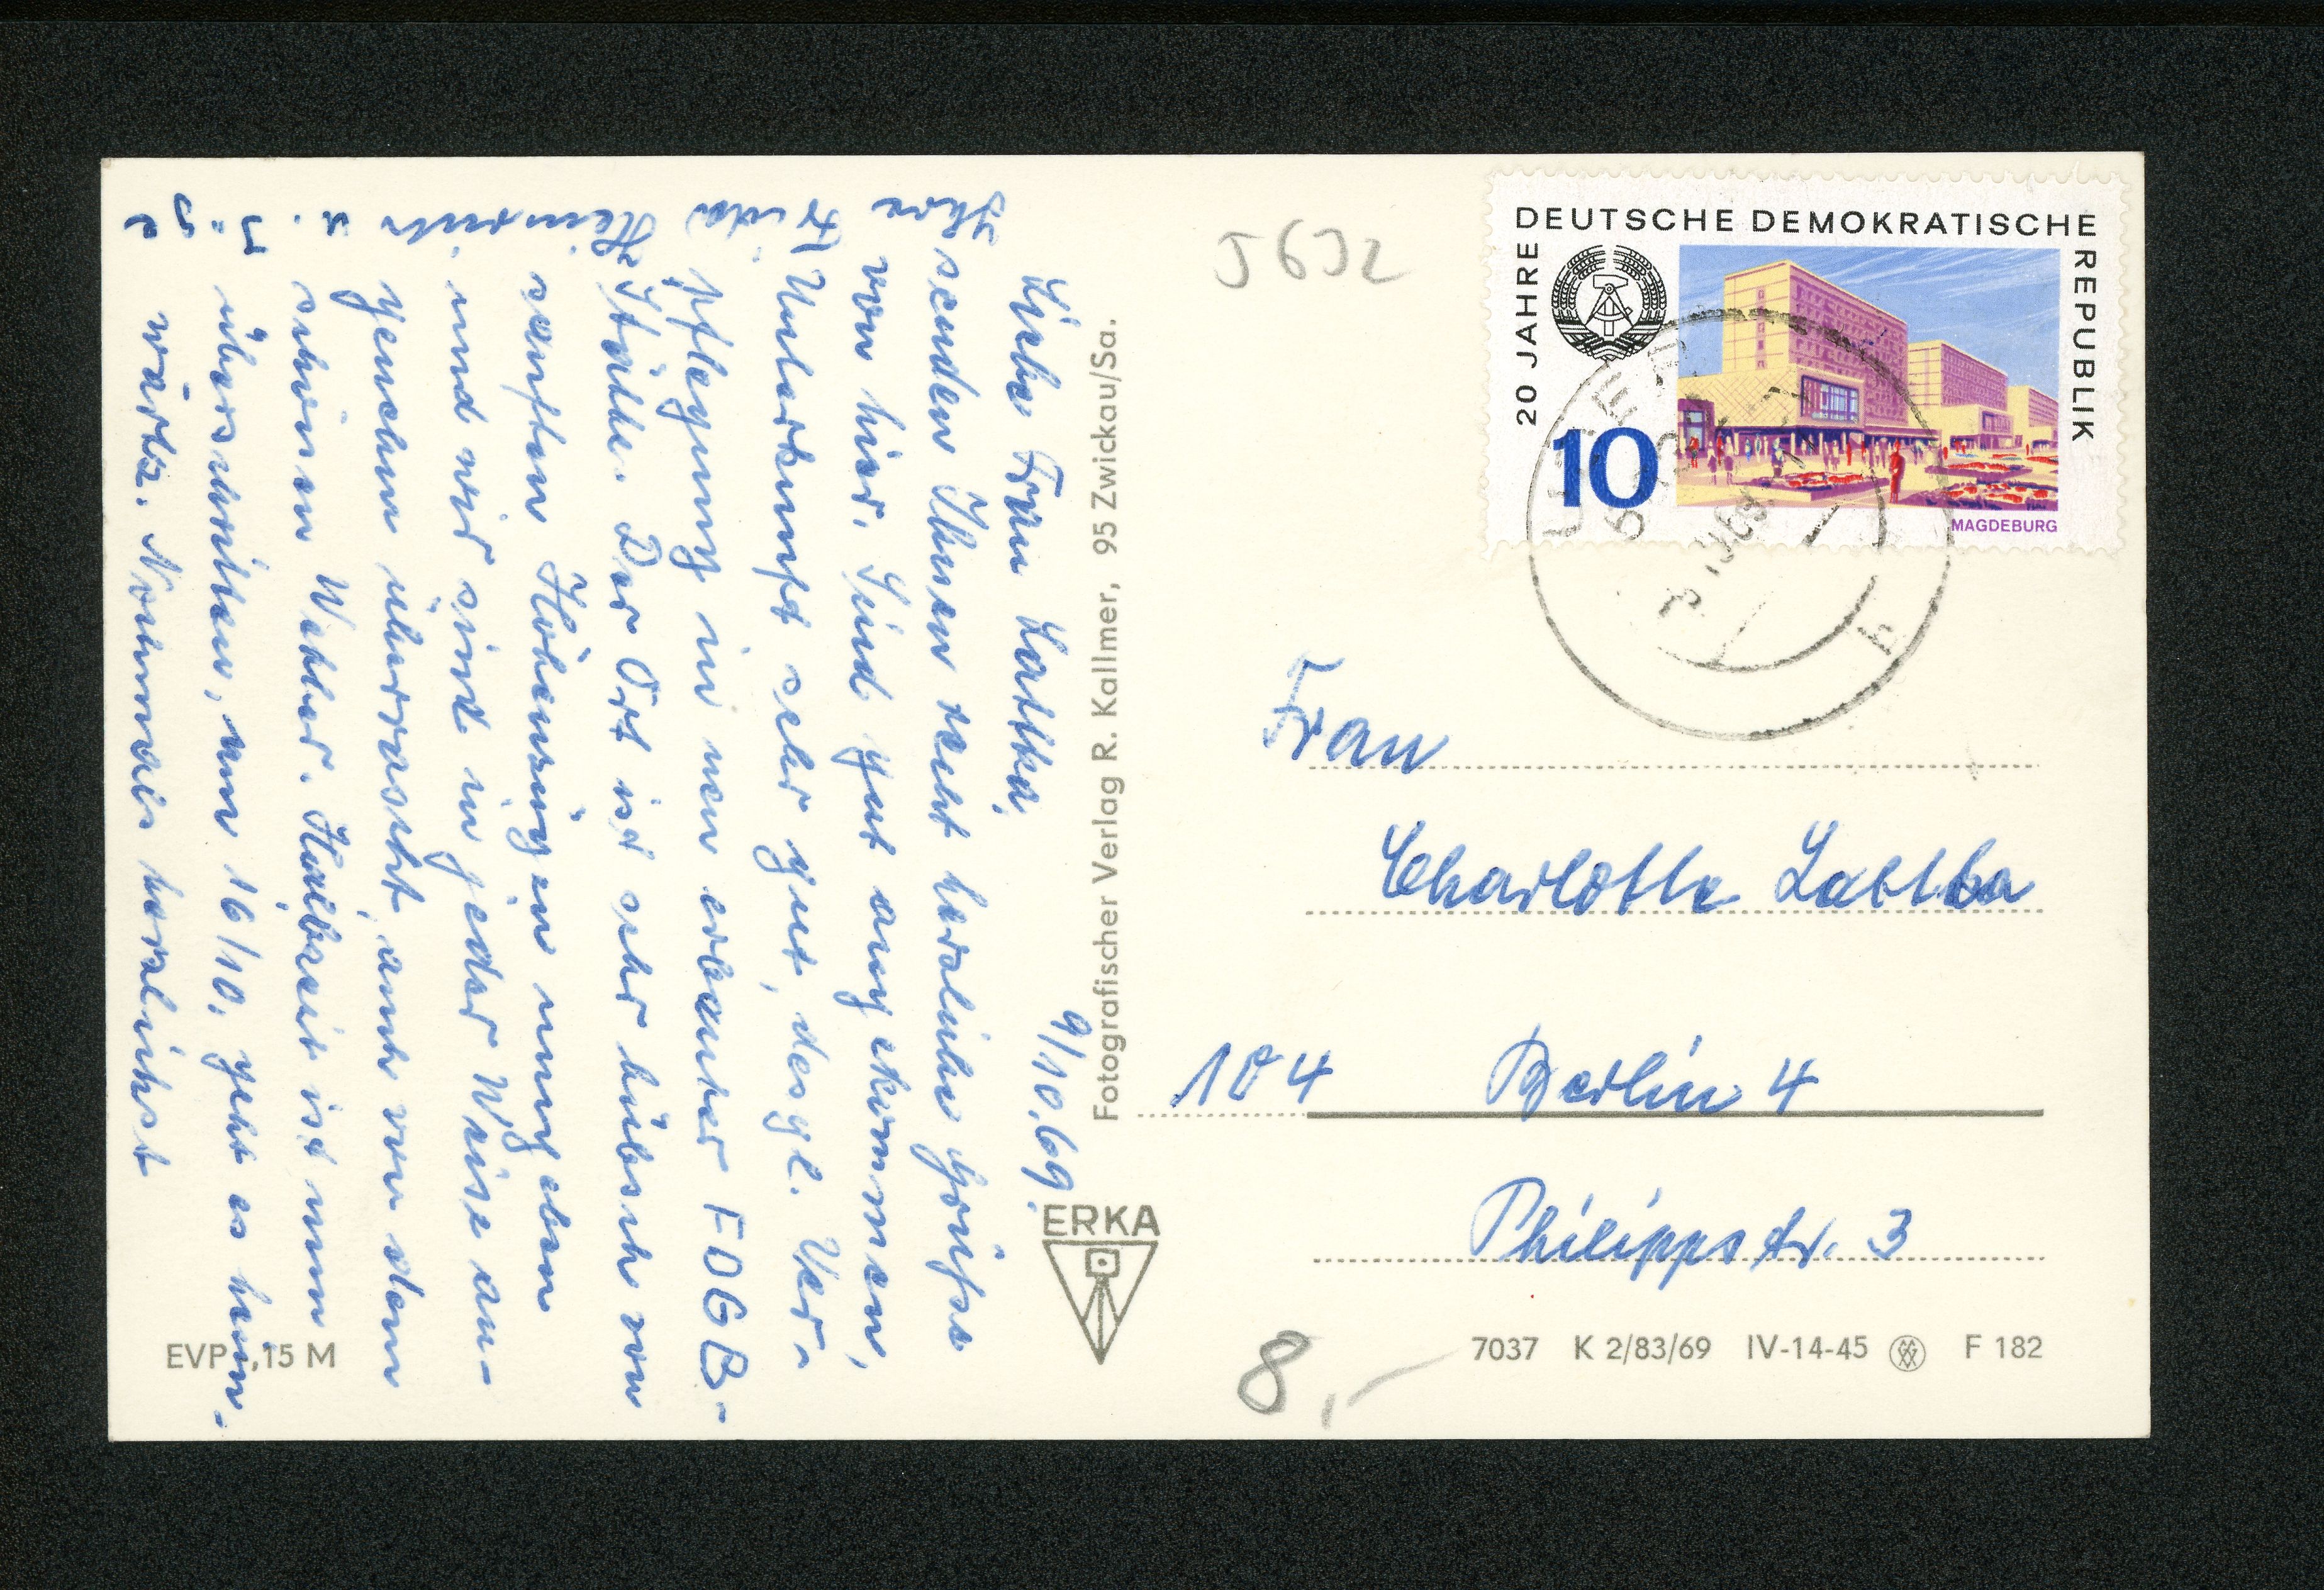 9/10.69.
Liebe Frau Lattka,
senden Ihnen recht herzliche Grüsse
von hier. Sind gut angekommen,
Unterkunft sehr gut, desgl. Ver-
pflegung in neu erbauter FDGB-
Stätte. Der Ort ist sehr hübsch von
sanften Höhenzügen umgeben
und wir sind in jeder Weise an-
genehm überrascht, auch von dem
schönen Wetter. Halbzeit ist nun
überschritten, am 16/10. geht es heim-
wärts. Nochmals herzlichst
Ihre
Frida
u.
Fotografischer Verlag R. Kallmer, 95 Zwickau/Sa.
ERKA
EVP ,15 M
5632
20 JAHRE DEUTSCHE DEMOKRATISCHE REPUBLIK
10
MAGDEBURG
Frau
Charlotte Lattka
104 Berlin 4
Philippstr. 3
8,-
7037 K 2/83/69 IV-14-45 F 182